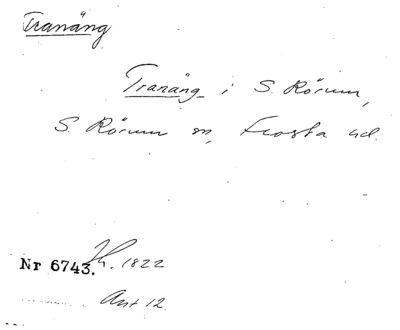 Tranäng
Tranäng i S. Rörum,
S. Rörum sn, Frosta hd.
Nr 6743. Jh. 1822
Ant 12.